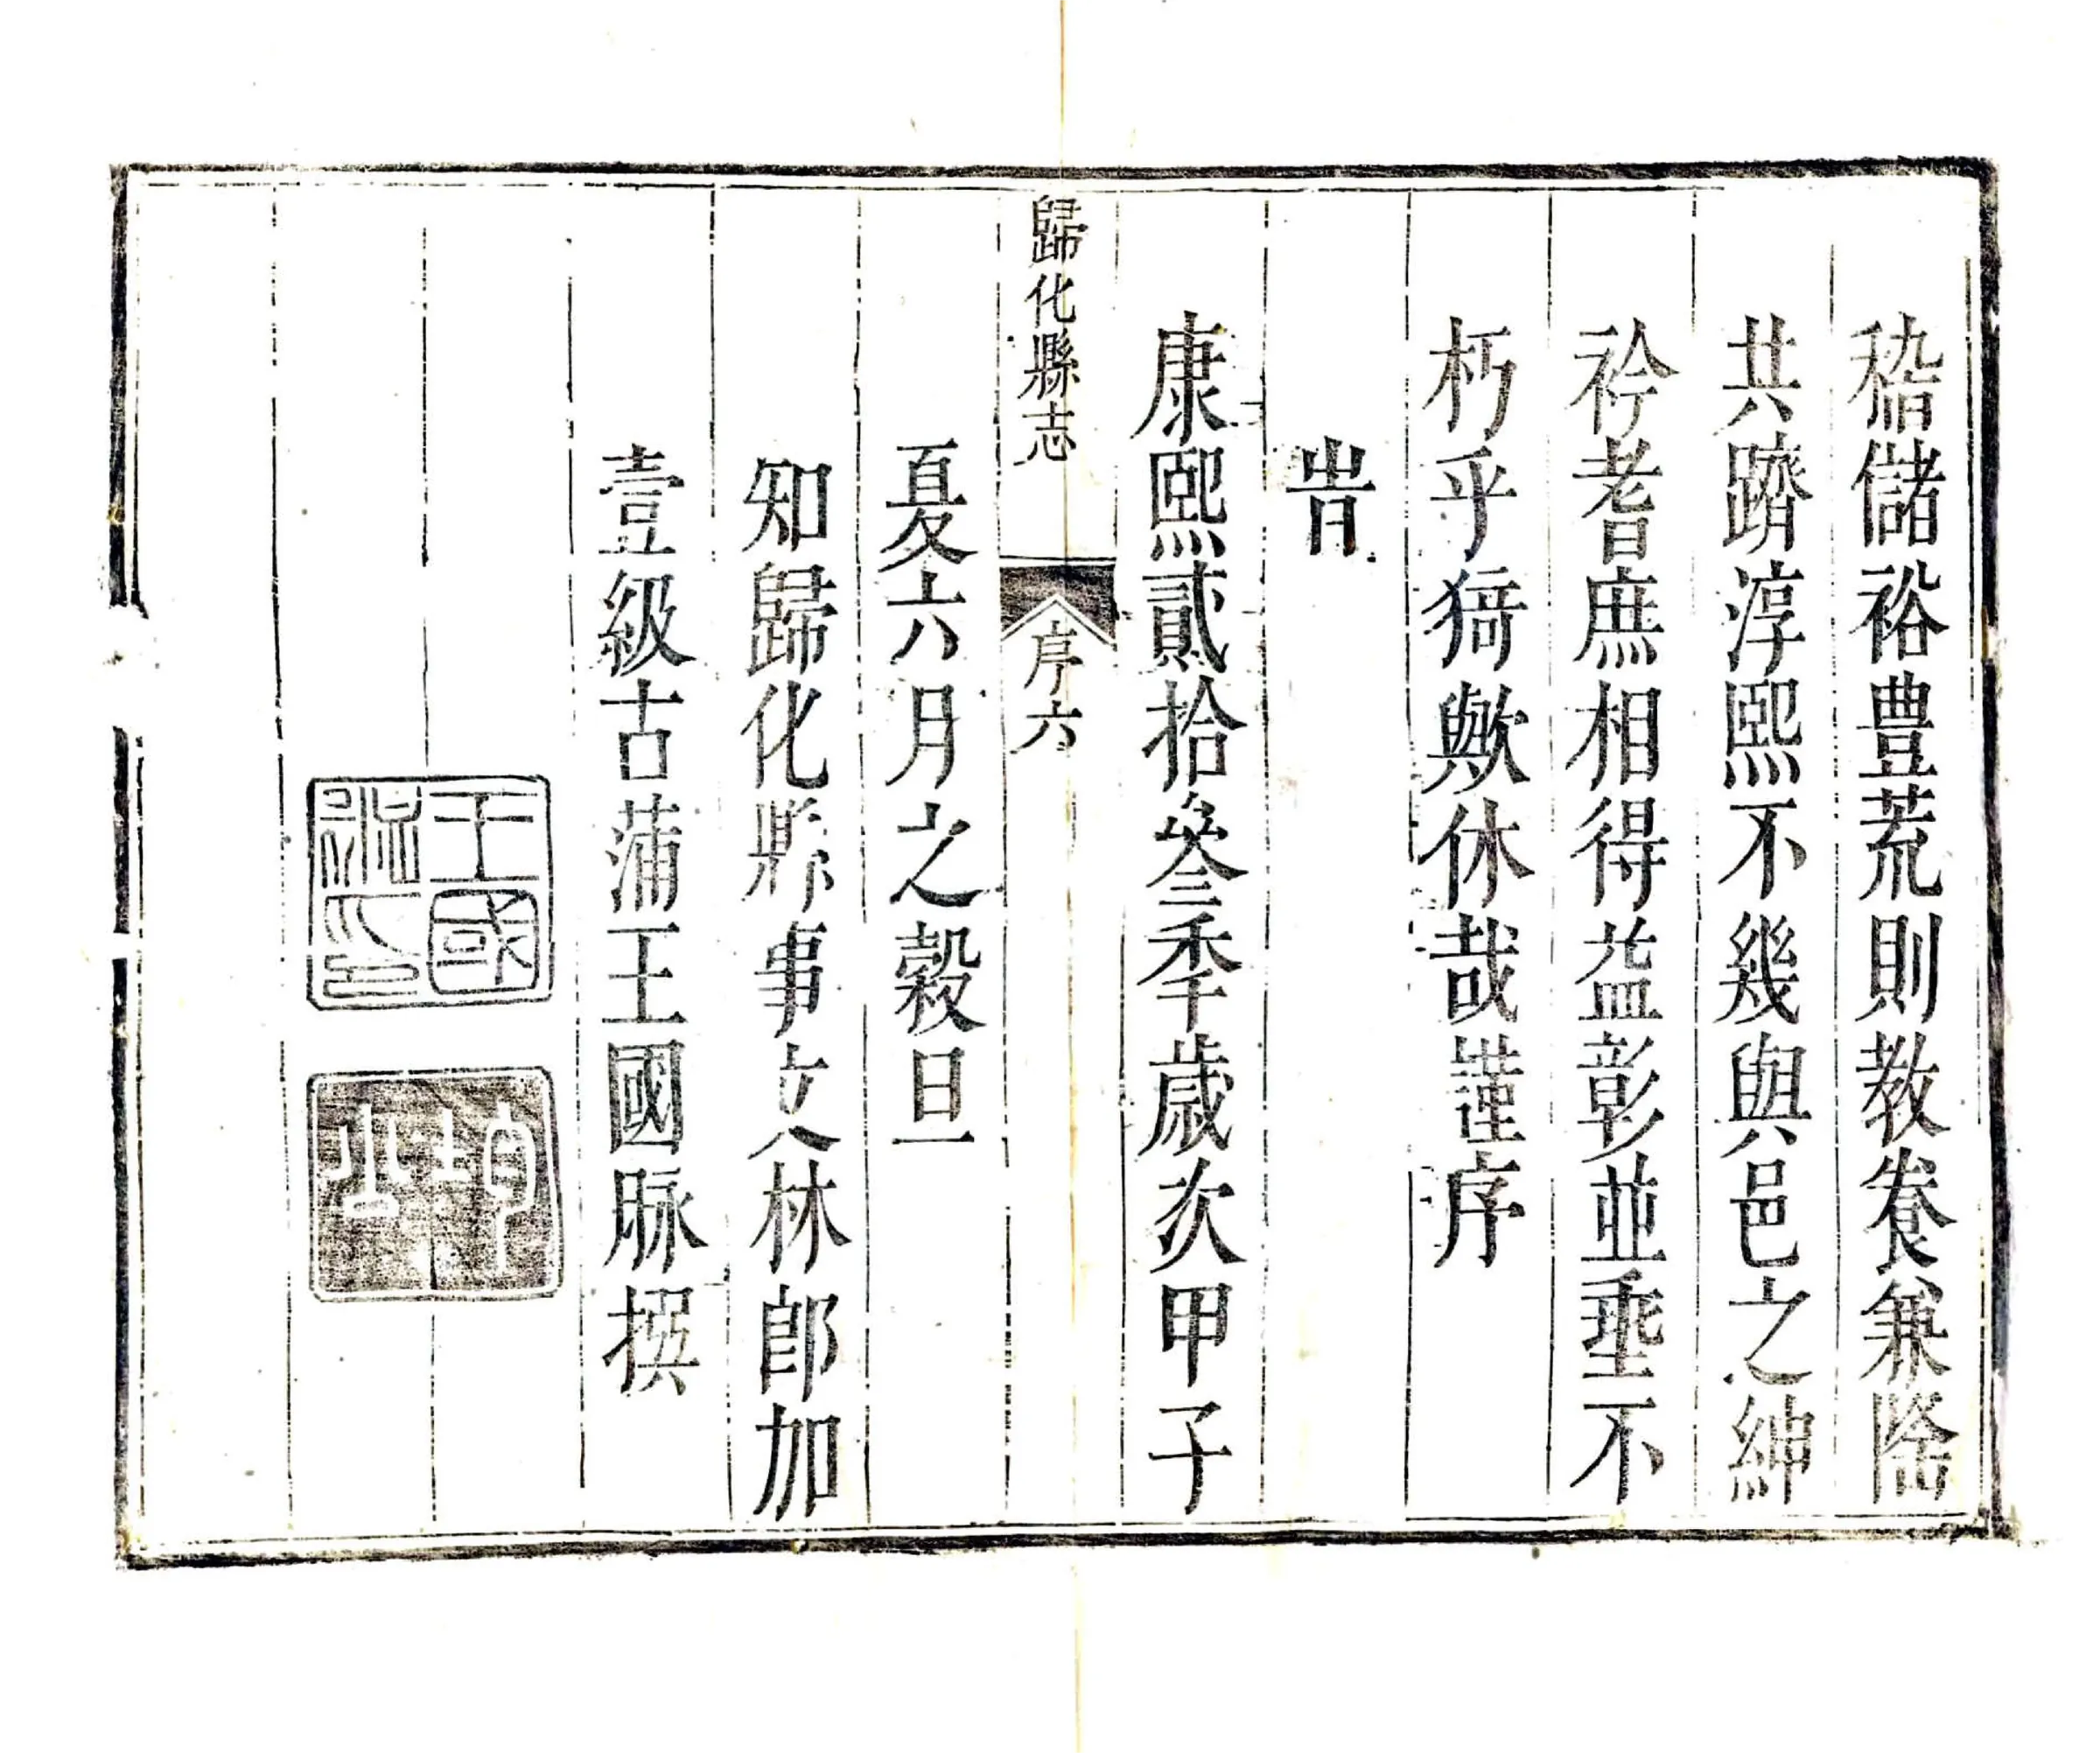 稽儲裕豊荒則教養兼隆
共躋淳熙不幾與邑之紳
衿耆庶相得益彰並垂不
朽乎猗歟休哉謹序
旹
康熙貳拾叅季歲次甲子
歸化縣志
序六
夏六月之穀旦
知歸化縣事文林郎加
壹級古蒲王國脉撰
王國
脉印